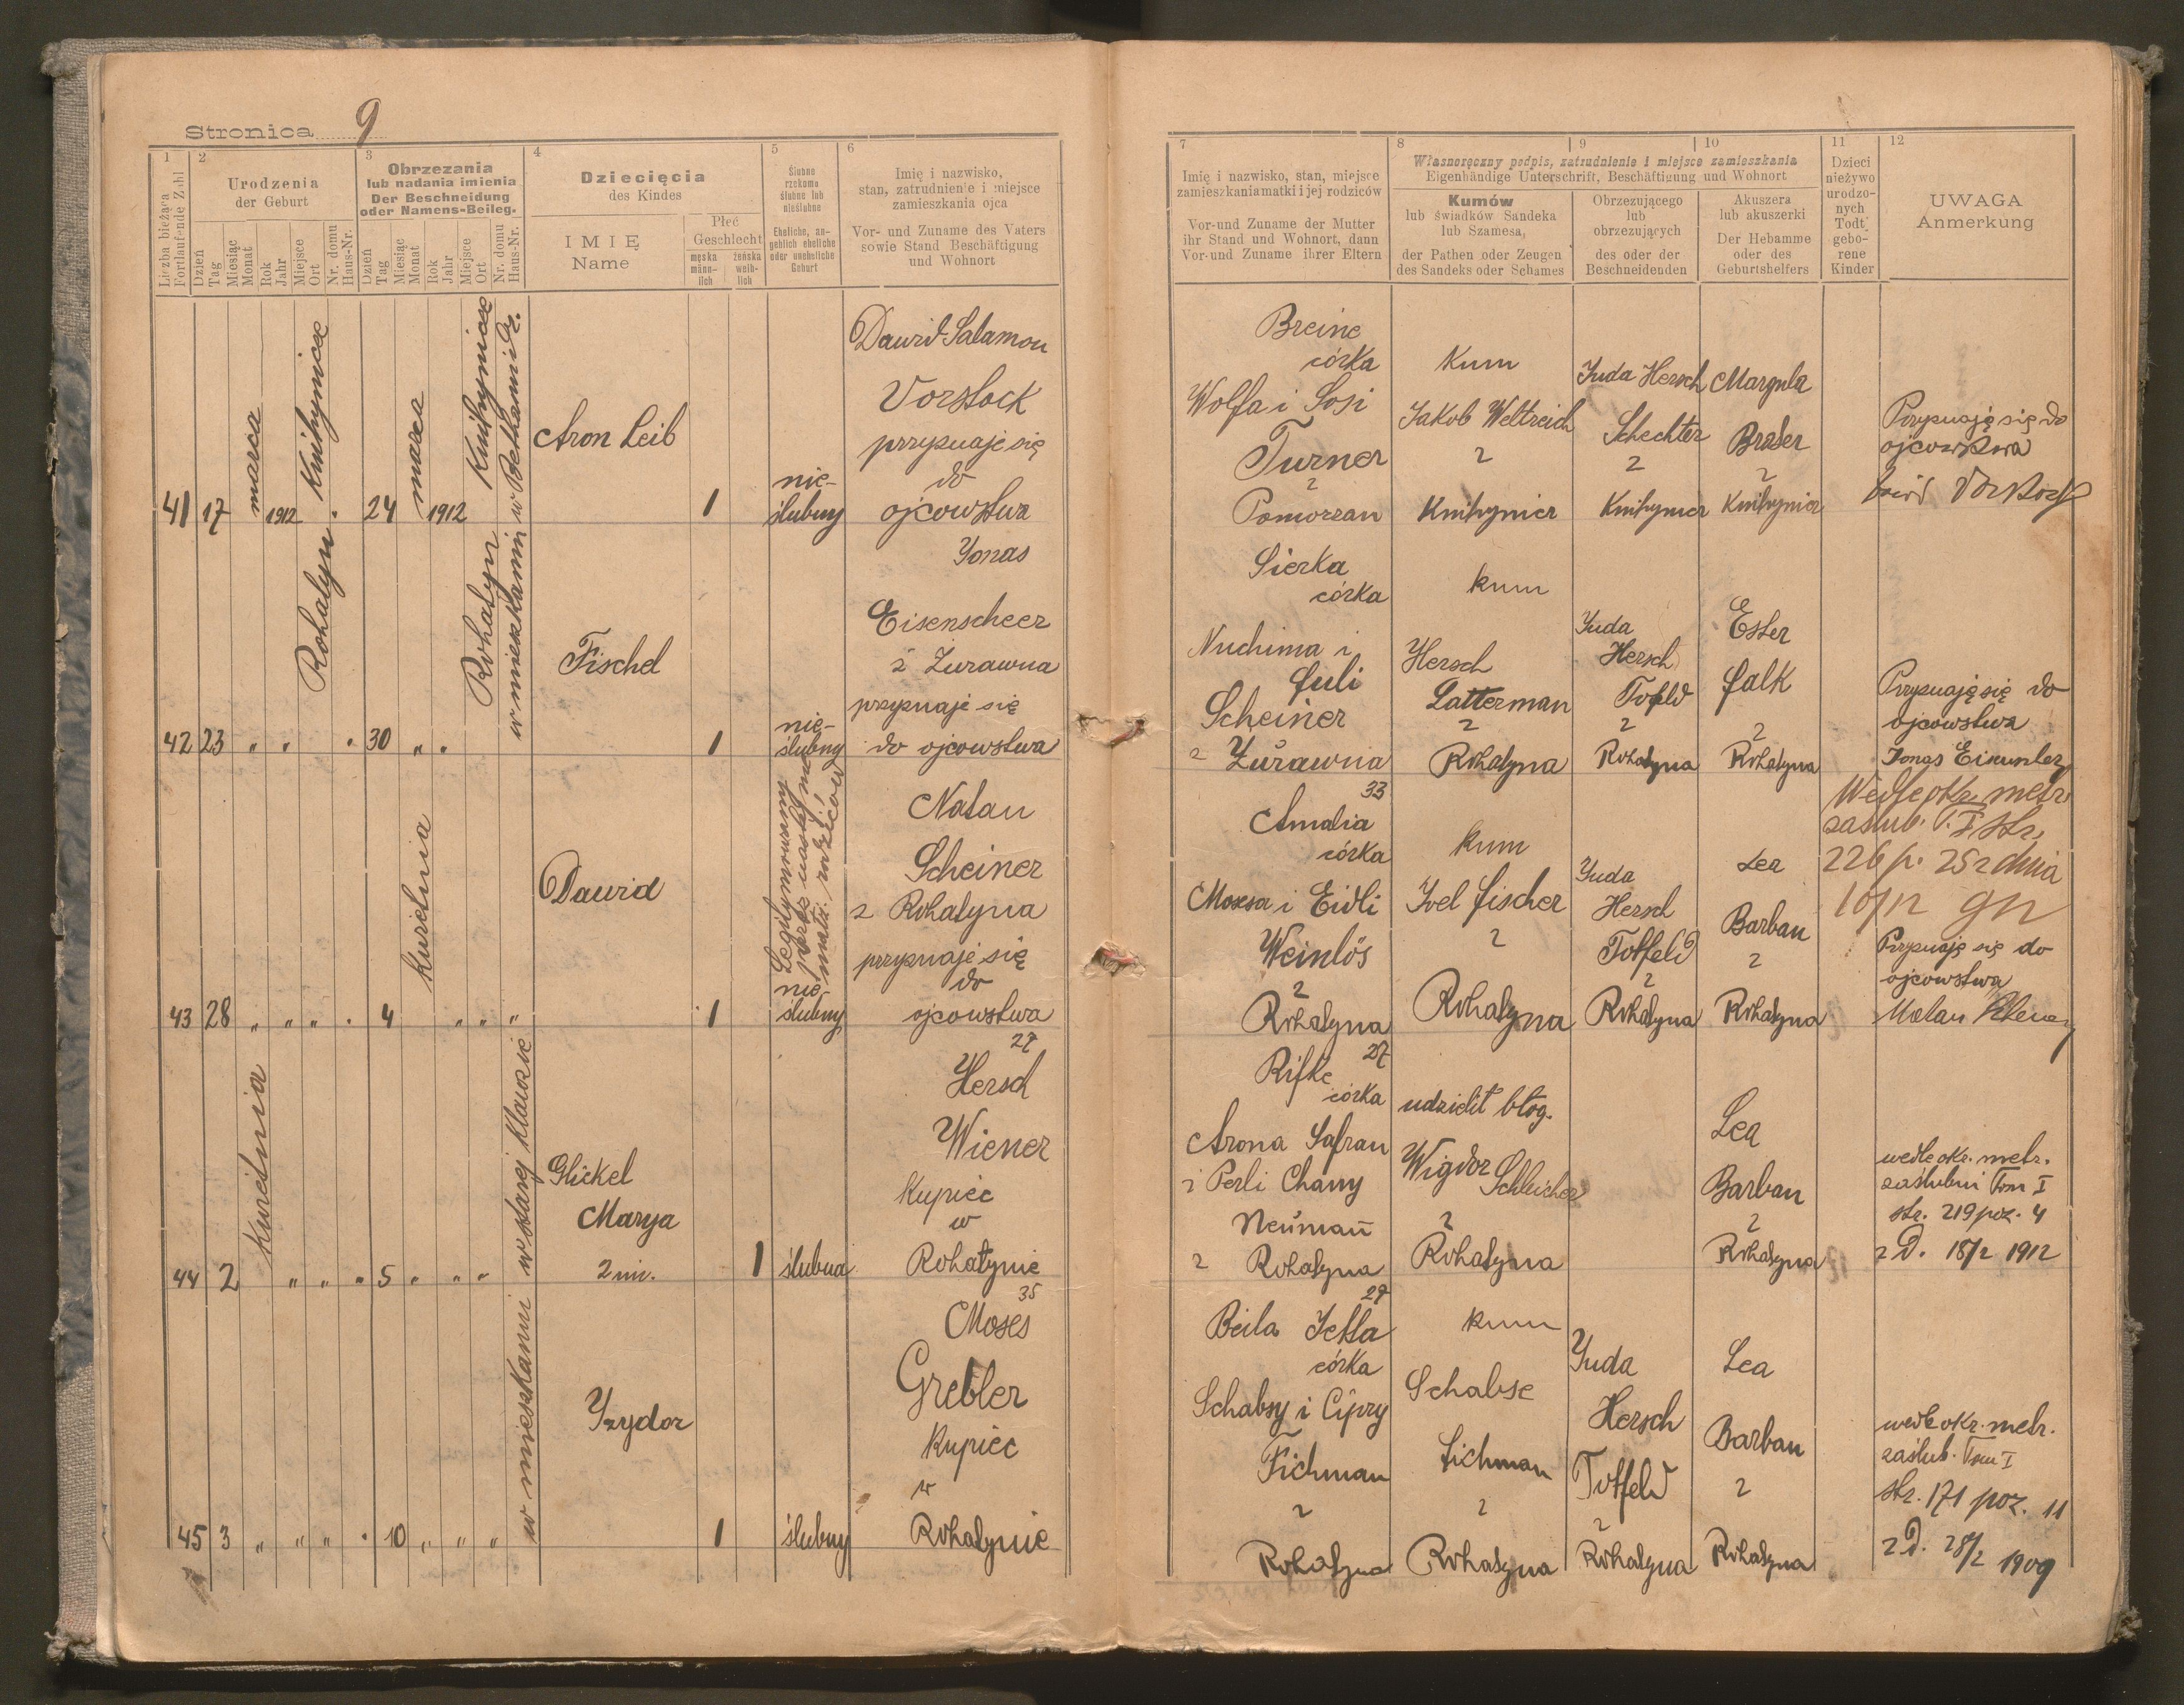 Stronica 9
1
Liczba bieżąca
Fortlaufende Zahl
2
Urodzenia
der Geburt
Dzień
Tag
Miesiąc
Monat
Rok
Jahr
Miejsce
Ort
Nr. domu
Haus-Nr.
3
Obrzezania
lub nadania imienia
Der Beschneidung
oder Namens-Beileg.
Dzień
Tag
Miesiąc
Monat
Rok
Jahr
Miejsce
Ort
Nr. domu
Haus-Nr.
4
Dziecięcia
des Kindes
IMIĘ
Name
Płeć
Geschlecht
męska
männ-
lich
żeńska
weib-
lich
5
Ślubne
rzekomo
ślubne lub
nieślubne
Eheliche, an-
geblich eheliche
oder uneheliche
Geburt
6
Imię i nazwisko,
stan, zatrudnienie i miejsce
zamieszkania ojca
Vor- und Zuname des Vaters
sowie Stand Beschäftigung
und Wohnort
7
Imię i nazwisko, stan, miejsce
zamieszkania matki i jej rodziców
Vor-und Zuname der Mutter
ihr Stand und Wohnort, dann
Vor-und Zuname ihrer Eltern
8
9
10
Własnoręczny podpis, zatrudnienie i miejsce zamieszkania
Eigenhändige Unterschrift, Beschäftigung und Wohnort
Kumów
lub świadków Sandeka
lub Szamesa,
der Pathen oder Zeugen
des Sandeks oder Schames
Obrzezującego
lub
obrzezujących
des oder der
Beschneidenden
Akuszera
lub akuszerki
Der Hebamme
oder des
Geburtshelfers
11
Dzieci
nieżywo
urodzo-
nych
Todt
gebo-
rene
Kinder
12
UWAGA
Anmerkung
41 17 marca 1912 Knihynicze 24 marca 1912 Knihynicze
Aron Leib
1
nie-
ślubny
Dawid Salamon
Vorstock
przyznaje się
do
ojcowstwa
Breine
córka
Wolfa i Sosi
Turner
z
Pomorzan
kum
Jakob Weltreich
z
Knihynicz
Juda Hersch
Schechter
z
Knihynicz
Margula
z
Knihynicz
Przyznaję się do
ojcowstwa
42 23 " " Rohatyn " 30 " " Rohatyn
w mieszkaniu
Fischel
1
nie-
ślubny
Jonas
Eisenscheer
z Żurawna
przyznaje się
do ojcowstwa
Sierka
córka
Nuchima i
Juli
Scheiner
z Żurawna
kum
Hersch
Latterman
z
Rohatyna
Juda
Hersch
Totfeld
z
Rohatyna
Ester
Falk
z
Rohatyna
Przyznaję się do
ojcowstwa
Jonas
43 28 " " " " 4 kwietnia " " "
Dawid
1
Legitymowany
przez
nie-
ślubny
Natan
Scheiner
z Rohatyna
przyznaje się
do
ojcowstwa
33
Amalia
córka
Mosesa i Eidli
Weinlös
z
Rohatyna
kum
Joel Fischer
z
Rohatyna
Juda
Hersch
Totfeld
z
Rohatyna
Lea
Barban
z
Rohatyna
Wedle okr. metr.
zaślub. T. I str.
226 p. 25 z dnia
Przyznaję się do
ojcowstwa
44 2 kwietnia " " " 5 " " " w starej klauzie
Glickel
Marya
2 im.
1
ślubna
27
Hersch
Wiener
kupiec
w
Rohatynie
27
Rifke
córka
Arona Safran
i Perli Chany
Neuman
z Rohatyna
udzielił błog.
Wigdor
Schleicher
z
Rohatyna
Lea
Barban
z
Rohatyna
wedle okr. metr.
zaślubin Tom I
str. 219 poz. 4
z D. 18/2 1912
45 3 " " " " 10 " " " w mieszkaniu
Izydor
1
ślubny
35
Moses
Grebler
kupiec
w
Rohatynie
27
Beila Jetta
córka
Schabsy i Cipry
Fichman
z
Rohatyna
kum
Schabse
Fichman
z
Rohatyna
Juda
Hersch
Totfeld
z
Rohatyna
Lea
Barban
z
Rohatyna
wedle okr. metr.
zaślub. Tom I
str. 171 poz. 11
z D. 28/2 1909